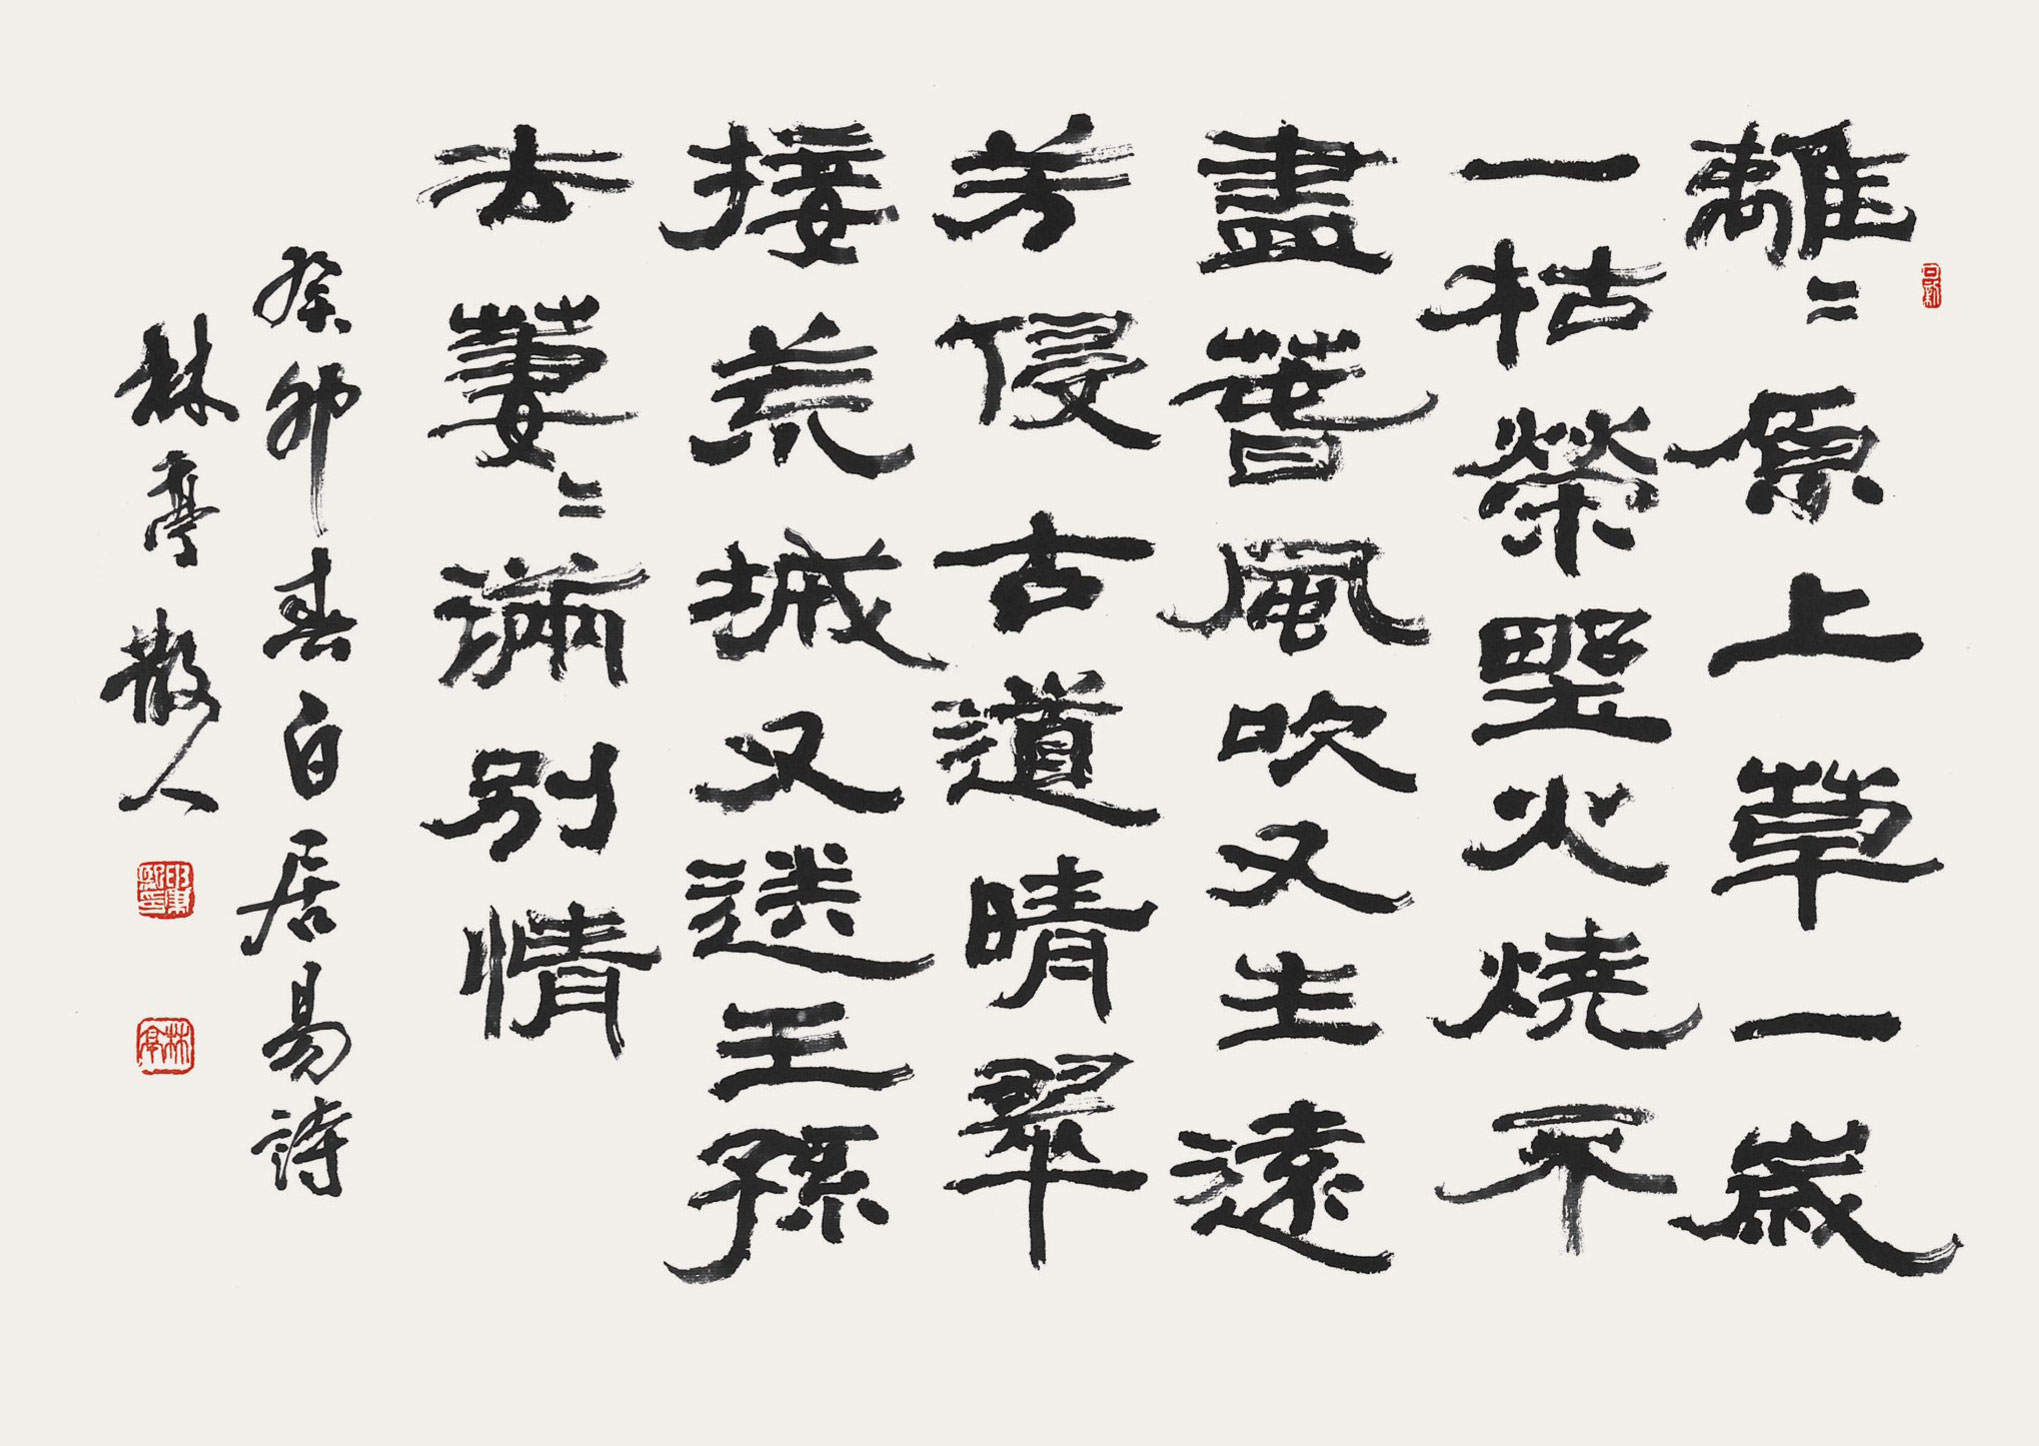 離〻原上草一歲
一枯榮野火燒不
盡萅風吹又生遠
芳侵古道晴翠
接荒城又送王孫
去萋〻滿別情
癸卯春白居易詩
林亭散人
林亭